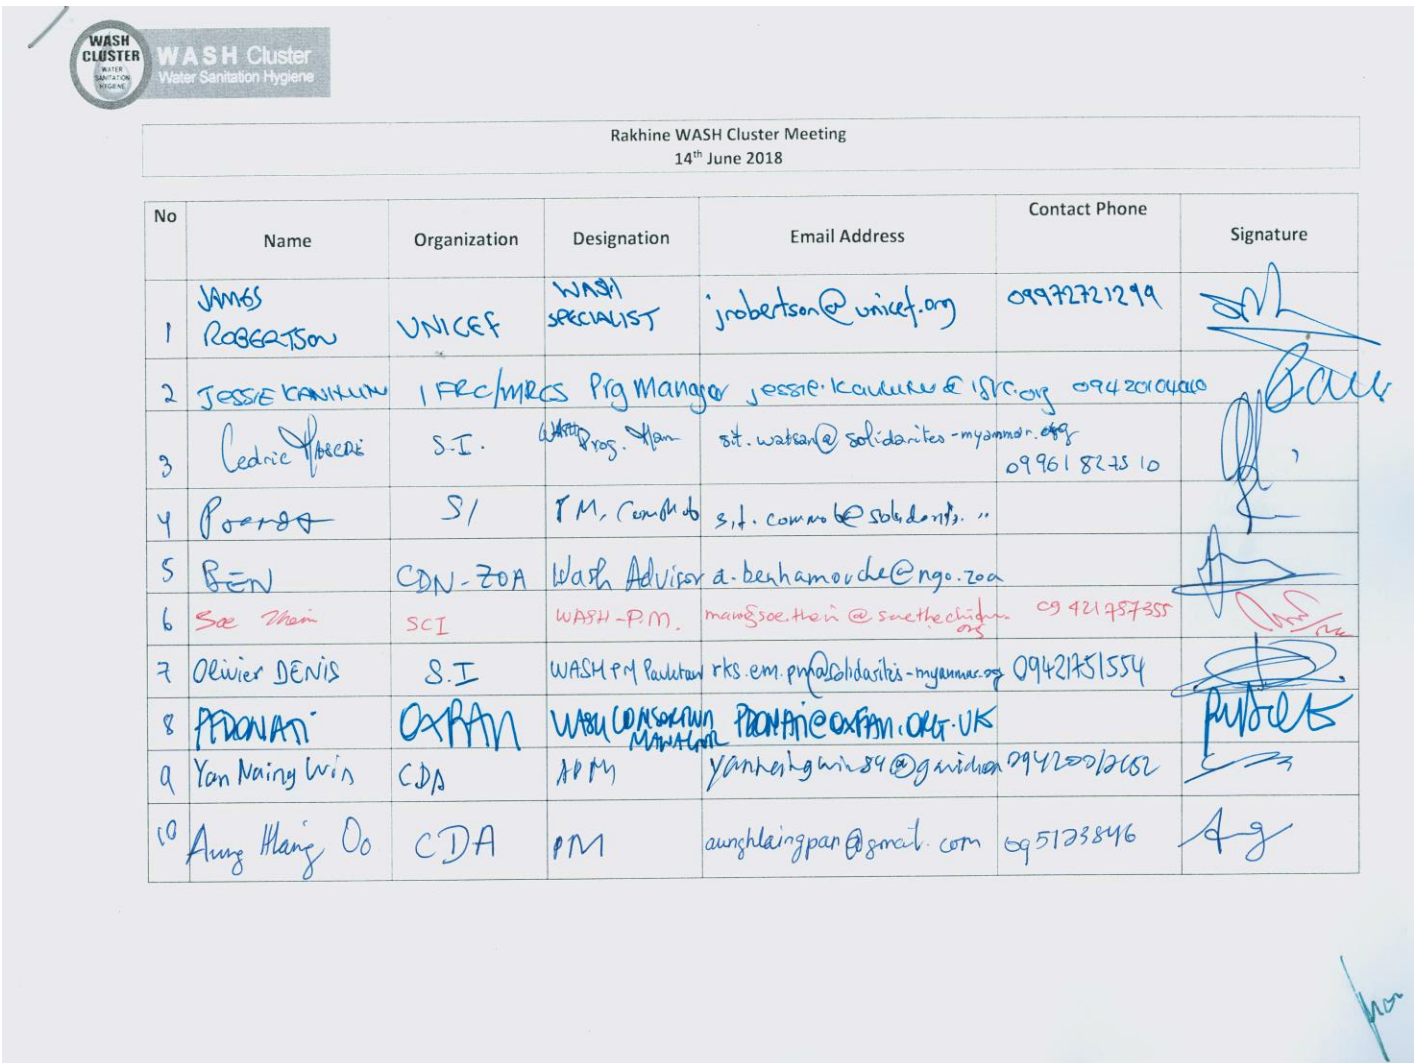 WASH
CLUSTER
WATER
SANITATION
HYGIENE
WASH Cluster
Water Sanitation Hygiene
Rakhine WASH Cluster Meeting
14th June 2018
No Name Organization Designation Email Address Contact Phone Signature
1 JAMES ROBERTSON UNICEF WASH SPECIALIST jrobertson@unicef.org 09972721299
2 JESSIE IFRC/MRCS Prg Manager
3 Cedric S.I. WASH Prog. Man sit.watsan@solidarites-myanmar.org 09961827510
4 SI
5 BEN CDN-ZOA Wash Advisor a.benhamouche@ngo.zoa
6 Soe Thein SCI WASH-P.M. 09 421757355
7 Olivier DENIS S.I WASH PM rks.em.pm@solidarites-myanmar.org 09421751554
8 PEDONATI OXFAM WASH CONSORTIUM MANAGER PDONATI@OXFAM.ORG.UK
9 Yan Naing Win CDA APM
10 Aung Hlaing Oo CDA PM aunghlaingpan@gmail.com